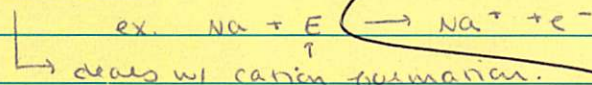 ex. Na + E → Na⁺ + e⁻
↑
↳ deals w/ cation formation.